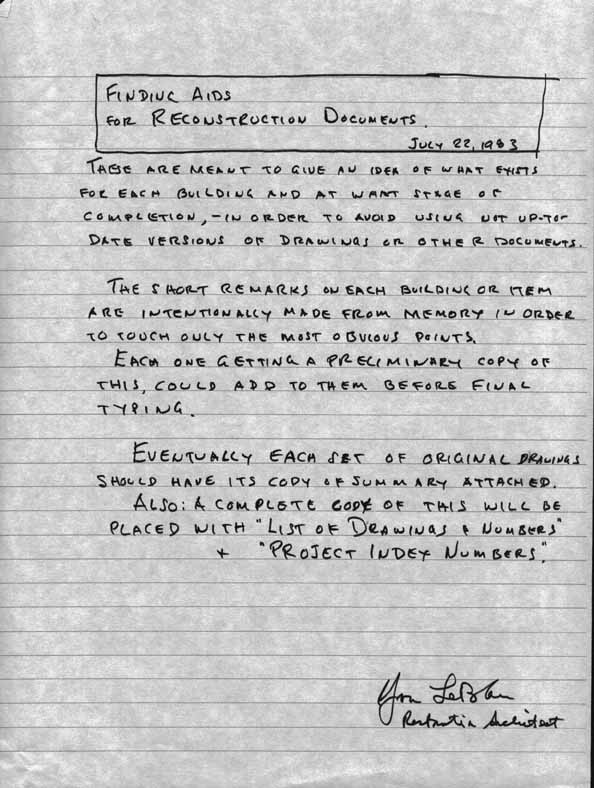 FINDING AIDS
FOR RECONSTRUCTION DOCUMENTS.
JULY 22, 1983
THESE ARE MEANT TO GIVE AN IDEA OF WHAT EXISTS
FOR EACH BUILDING AND AT WHAT STAGE OF
COMPLETION, - IN ORDER TO AVOID USING NOT UP-TO-
DATE VERSIONS OF DRAWINGS OR OTHER DOCUMENTS.
THE SHORT REMARKS ON EACH BUILDING OR ITEM
ARE INTENTIONALLY MADE FROM MEMORY IN ORDER
TO TOUCH ONLY THE MOST OBVIOUS POINTS.
EACH ONE GETTING A PRELIMINARY COPY OF
THIS, COULD ADD TO THEM BEFORE FINAL
TYPING.
EVENTUALLY EACH SET OF ORIGINAL DRAWINGS
SHOULD HAVE ITS COPY OF SUMMARY ATTACHED.
ALSO: A COMPLETE COPY OF THIS WILL BE
PLACED WITH "LIST OF DRAWINGS & NUMBERS"
+ "PROJECT INDEX NUMBERS".
Yvon LeBlanc
Restoration Architect